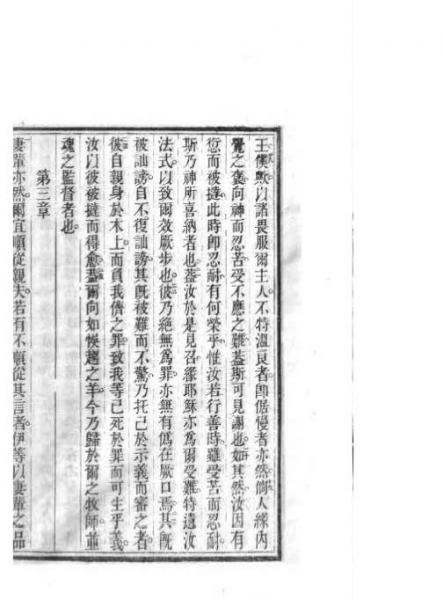 王僕歟以諸畏服爾主人不特溫良者卽倨慢者亦然倘人緣內
覺之褒向神而忍苦受不應之難蓋斯可見謝也如其然汝因有
愆而被撻此時卽忍耐有何榮乎惟汝若行善時雖受苦而忍耐
斯乃神所喜納者也蓋汝於是見召緣耶穌亦爲爾受難特遺汝
法式以致爾效厥步也彼乃絕無爲罪亦無有僞在厥口焉其旣
被訕謗自不復訕謗其旣被難而不驚乃托己於示義而審之者
彼自親身於木上而負我儕之罪致我等已死於罪而可生乎義
汝以彼被撻而得愈蓋爾向如悞趨之羊今乃歸於爾之牧師並
魂之監督者也
第三章
妻輩亦然爾宜順從親夫若有不順從其言者伊等以妻輩之品